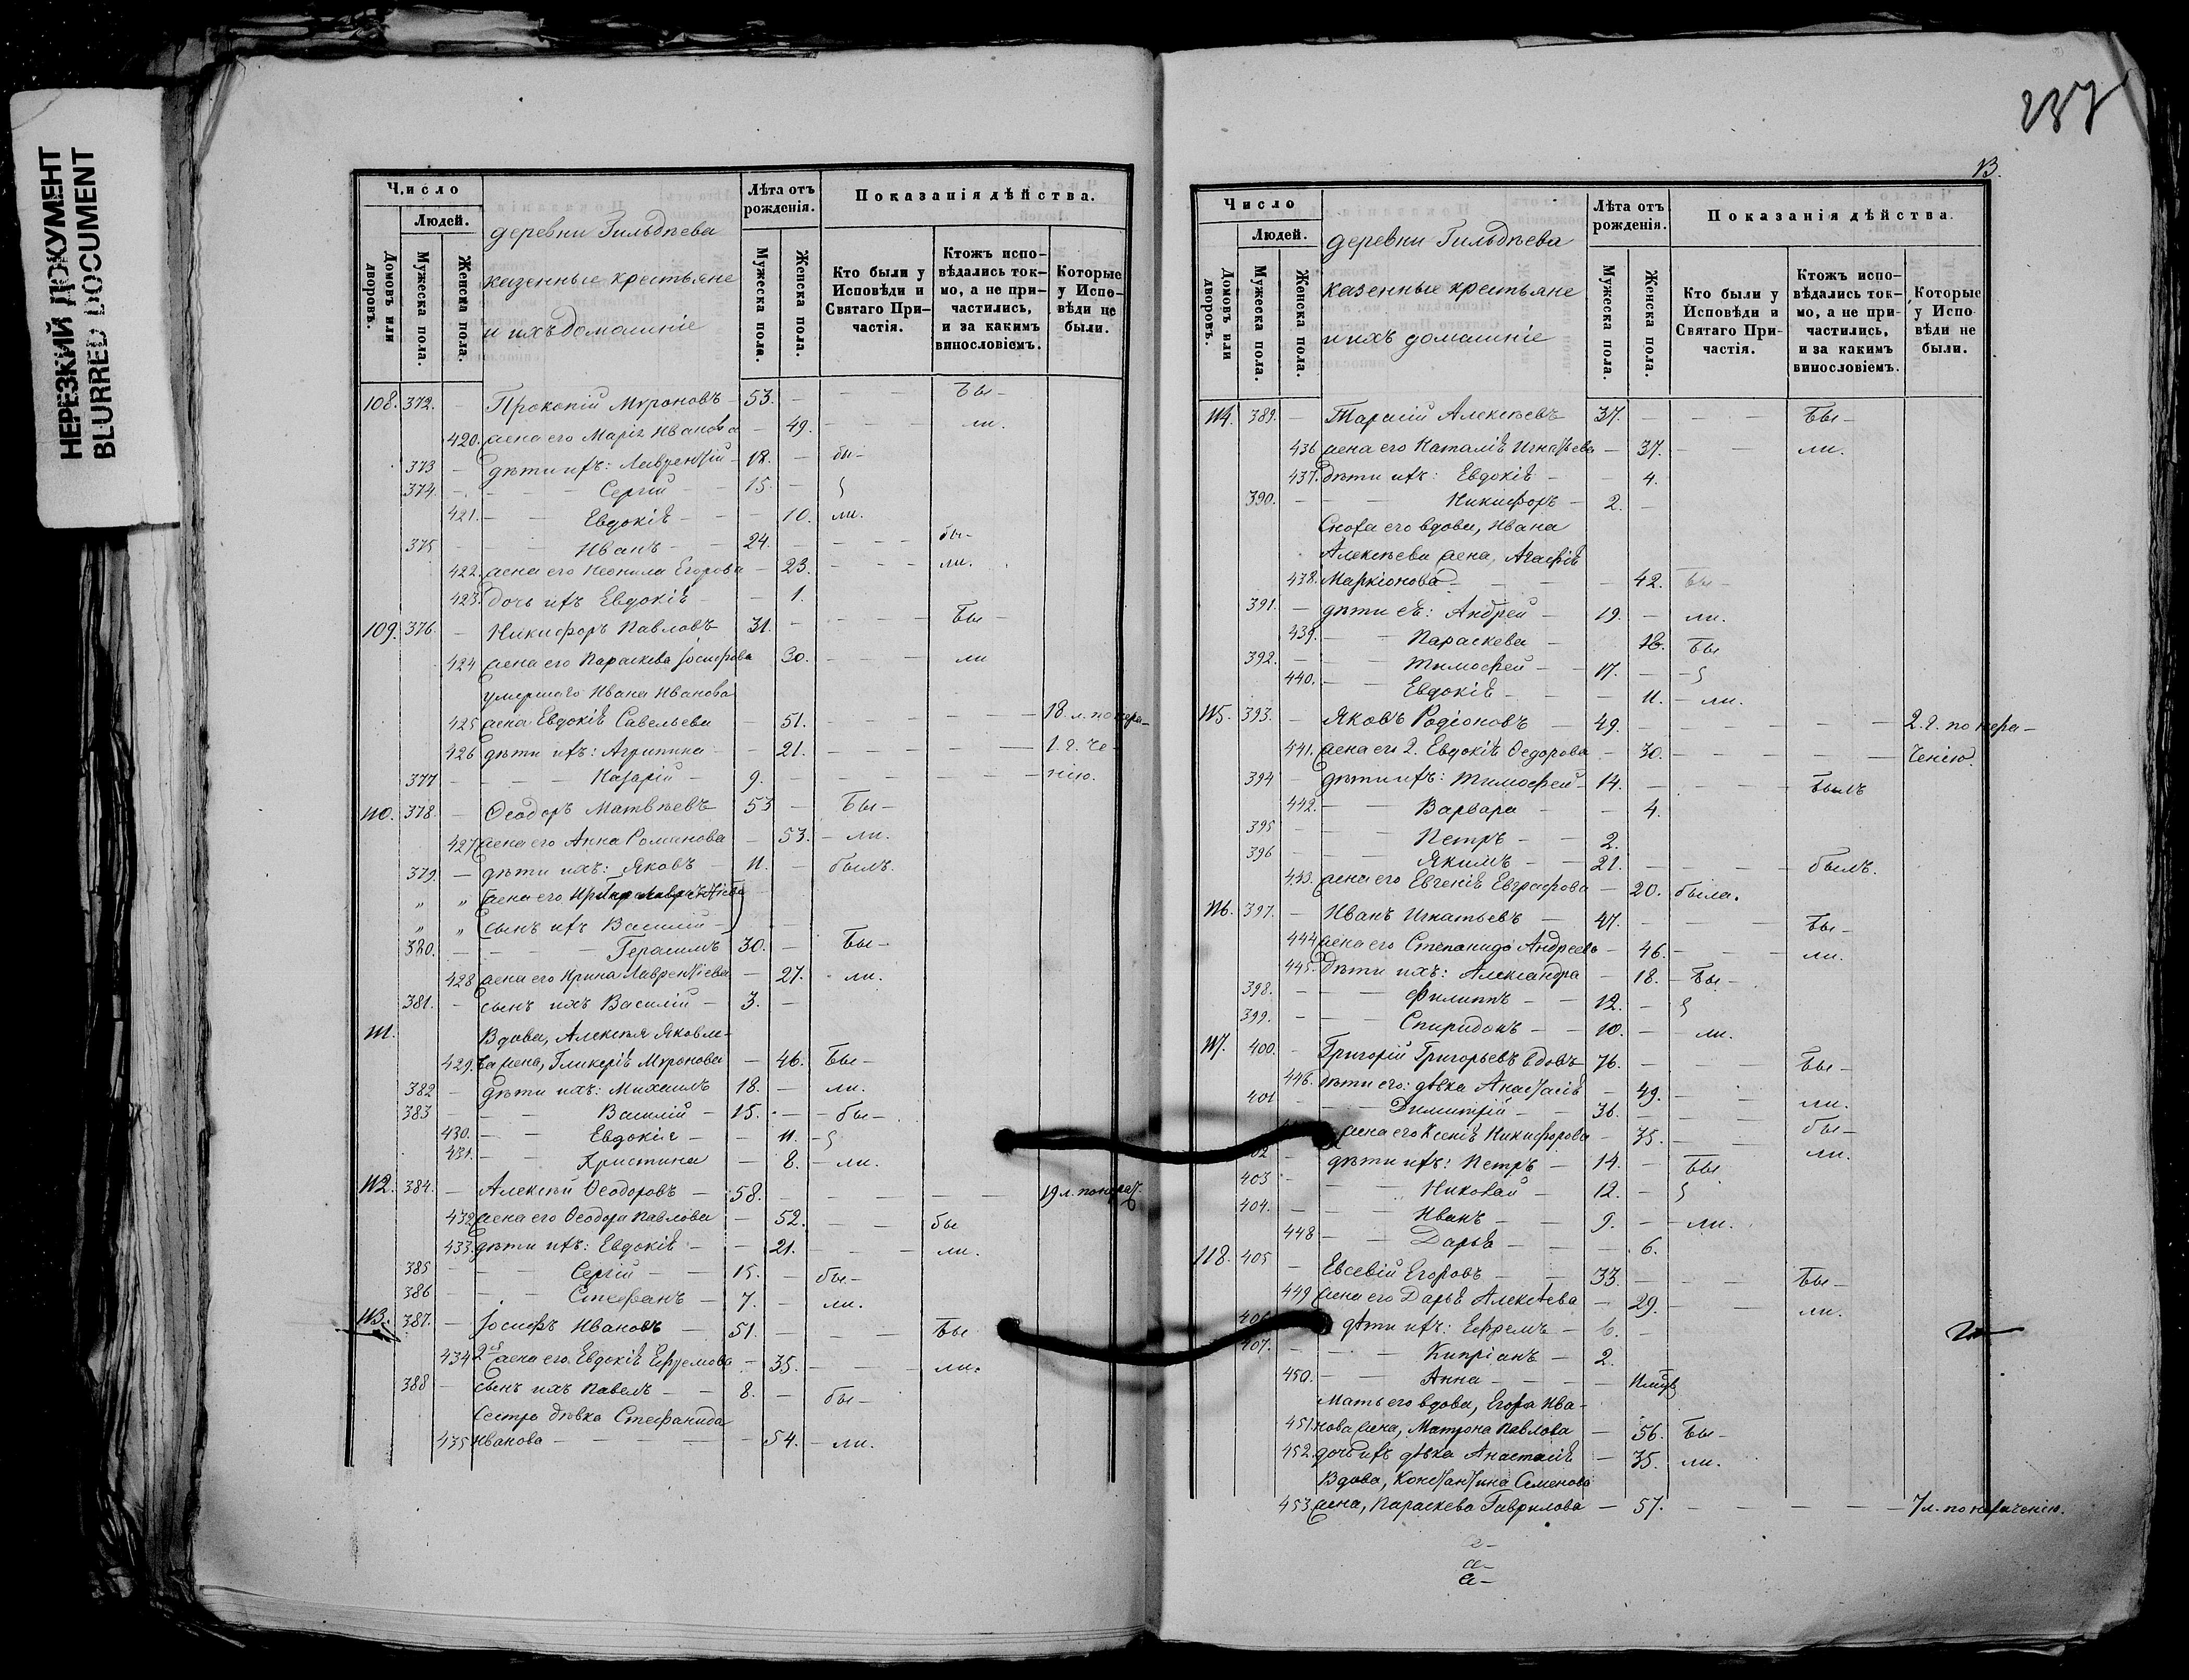 НЕРЕЗКИЙ ДОКУМЕНТ
BLURRED DOCUMENT
Число
Людей.
Домовъ или дворовъ.
Мужеска пола.
Женска пола.
деревни Гильдѣева
казенные крестьяне
и ихъ домашніе
Лѣта отъ рожденія.
Мужеска пола.
Женска пола.
Показанія дѣйства.
Кто были у Исповѣди и Святаго Причастія.
Ктожъ исповѣдались токмо, а не причастились, и за какимъ винословіемъ.
Которые у Исповѣди не были.
108. 372. – Прокопій Мѵроновъ – 53. – – – – Бы–
420. жена его Марія Иванова – 49. – – – ли.
373 – дѣти ихъ: Лаврентій – 18. – бы–
374. – – – Сергій – – 15. –
421. – – Евдокія – – – 10. ли.
375 – – – Иванъ – – 24. – – – бы–
422. жена его Неонила Егорова – 23. – – – ли.
423. дочь ихъ Евдокія – – 1.
109. 376. – Никифоръ Павловъ 31. – – – – Бы–
424 жена его Параскева Іосифова 30. – – – ли
умершаго Ивана Иванова
425 жена Евдокія Савельева – 51. – – – – – 18. л. по нера–
426 дѣти ихъ: Агрипина – – 21. – – – – 1. г. че–
377 – – – Назарій – 9. – – – – – – нію.
110. 378. – Ѳеодоръ Матвѣевъ – 53 – Бы–
427 жена его Анна Романова – 53. – ли.
379. – дѣти ихъ: Яковъ – 11. – былъ.
„ „ жена его Ирина Лаврентіева
„ „ сынъ ихъ Василій –
380. – – – Герасимъ 30. – Бы–
428 жена его Ирина Лаврентіева – 27. – ли.
381. – сынъ ихъ Василій – 3. –
111. Вдова, Алексѣя Яковле–
429. ва жена, Гликерія Мѵронова – 46. Бы–
382 – дѣти ихъ: Михаилъ 18. – ли.
383 – – – Василій – 15. – – бы–
430. – – Евдокія – – 11. –
431. – – Христина – 8. – ли.
112. 384. – Алексѣй Ѳеодоровъ – 58. – – – – – 19 л. по нерач.
432 жена его Ѳеодора Павлова – 52. – – бы
433. дѣти ихъ: Евдокія – – 21. – – – ли.
385 – – – Сергій – – 15. – бы–
386 – – – Стефанъ – 7. – ли.
113. 387. – Іосифъ Ивановъ – 51. – – – – Бы
434 2я жена его Евдокія Ефремова – 35. – – – ли.
388 – сынъ ихъ Павелъ – – 8. – бы–
Сестра дѣвка Стефанида
435 Иванова – – – – – 54. – ли.
237
113.
Число
Людей.
Домовъ или дворовъ.
Мужеска пола.
Женска пола.
деревни Гильдѣева
казенные крестьяне
и ихъ домашніе
Лѣта отъ рожденія.
Мужеска пола.
Женска пола.
Показанія дѣйства.
Кто были у Исповѣди и Святаго Причастія.
Ктожъ исповѣдались токмо, а не причастились, и за какимъ винословіемъ.
Которые у Исповѣди не были.
114. 389. – Тарасій Алексѣевъ 37. – – – Бы–
436 жена его Наталія Игнатьева – 37. – – ли.
437. дѣти ихъ: Евдокія – – 4.
390. – – – Никифоръ – 2. –
Сноха его вдова, Ивана
Алексѣева жена, Агафія
438. Маркіонова – – – 42. Бы–
391. – дѣти ея: Андрей – 19. – ли.
439. – – Параскева – 18. Бы
392. – – – Тимофей – – 17. – –
440. – – Евдокія – – – 11. – ли.
115. 393. – Яковъ Родіоновъ – 49. – – – – – 2. г. по нера–
441. жена его 2. Евдокія Ѳедорова – 30. – – – – – ченію.
394 – дѣти ихъ: Тимофей – 14. – – – – Былъ
442. – – Варвара – – 4.
395 – – – Петръ – – 2.
396 – – – Якимъ – – 21. – – – былъ.
443. жена его Евгенія Евграфова – 20. была.
116. 397. – Иванъ Игнатьевъ – 47. – – – Бы–
444 жена его Степанида Андреева – 46. – – ли.
445. дѣти ихъ: Александра – 18. – Бы–
398. – – – Филиппъ – – 12. –
399. – – – Спиридонъ – – 10. – – ли.
117. 400. – Григорій Григорьевъ вдовъ 76. – – – Бы–
446. дѣти его: дѣвка Анастасія – 49. – – ли.
401 – – – Димитрій – – 36. – – – бы–
жена его Ксенія Никифорова – 35. – – ли.
402 – дѣти ихъ: Петръ – 14. – Бы
403 – – – Николай – 12. –
404. – – – Иванъ – – 9. – – ли.
448 – – Дарья – – – 6.
118. 405 – Евсевій Егоровъ – – 33. – – – Бы–
449 жена его Дарья Алексѣева – 29. – – ли.
406 дѣти ихъ: Ефремъ – 6. –
407. – – – Кипріанъ – 2.
450. – – Анна – – – –
Мать его вдова, Егора Ива–
451. нова жена, Матрона Павлова – 56. Бы–
452. дочь ихъ дѣвка Анастасія – 35. ли.
Вдова, Константина Семенова
453. жена, Параскева Гаврилова – 57. – – – – – 7 л. по нераченію.